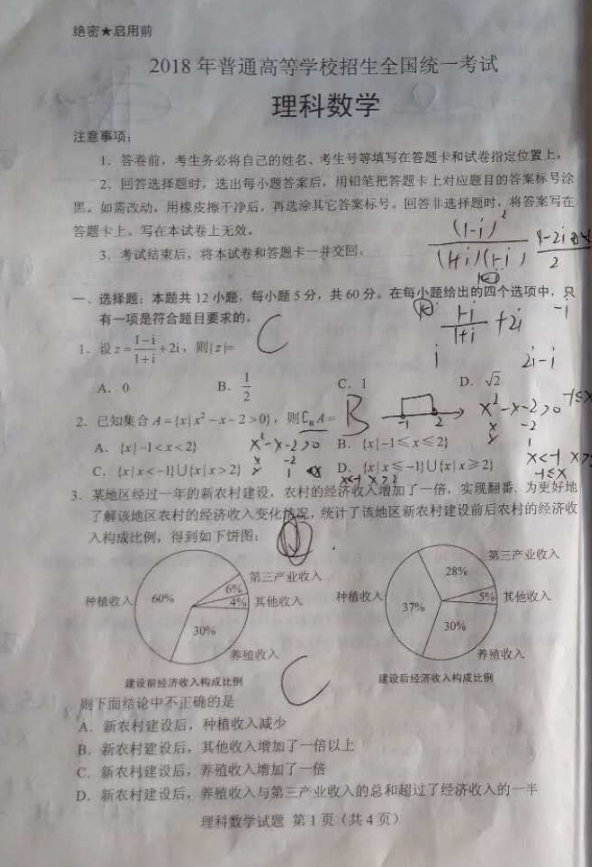 绝密★启用前
2018 年普通高等学校招生全国统一考试
理科数学
注意事项：
1．答卷前，考生务必将自己的姓名、考生号等填写在答题卡和试卷指定位置上。
2．回答选择题时，选出每小题答案后，用铅笔把答题卡上对应题目的答案标号涂
黑。如需改动，用橡皮擦干净后，再选涂其它答案标号。回答非选择题时，将答案写在
答题卡上。写在本试卷上无效。
3．考试结束后，将本试卷和答题卡一并交回。
(1-i)²
(1+i)(1-i)
2
一、选择题：本题共 12 小题，每小题 5 分，共 60 分。在每小题给出的四个选项中，只
有一项是符合题目要求的。
1-i/1+i +2i
-i
i
2i-i
1．设 z = 1-i/1+i + 2i，则|z|=
C
A．0 B．1/2 C．1 D．√2
2．已知集合 A={x|x²-x-2>0}，则∁RA=
B
-1 2
x²-x-2>0
x -2
x 1
A．{x|-1<x<2} B．{x|-1≤x≤2}
x²-x-2>0
x -2
x 1
x<-1
-1≤x
C．{x|x<-1}∪{x|x>2} D．{x|x≤-1}∪{x|x≥2}
x<-1 x>2
3．某地区经过一年的新农村建设，农村的经济收入增加了一倍，实现翻番．为更好地
了解该地区农村的经济收入变化情况，统计了该地区新农村建设前后农村的经济收
入构成比例，得到如下饼图：
种植收入 60%
第三产业收入 6%
4% 其他收入
30%
养殖收入
建设前经济收入构成比例
第三产业收入
28%
种植收入 37%
5% 其他收入
30%
养殖收入
建设后经济收入构成比例
C
则下面结论中不正确的是
A．新农村建设后，种植收入减少
B．新农村建设后，其他收入增加了一倍以上
C．新农村建设后，养殖收入增加了一倍
D．新农村建设后，养殖收入与第三产业收入的总和超过了经济收入的一半
理科数学试题 第 1 页（共 4 页）